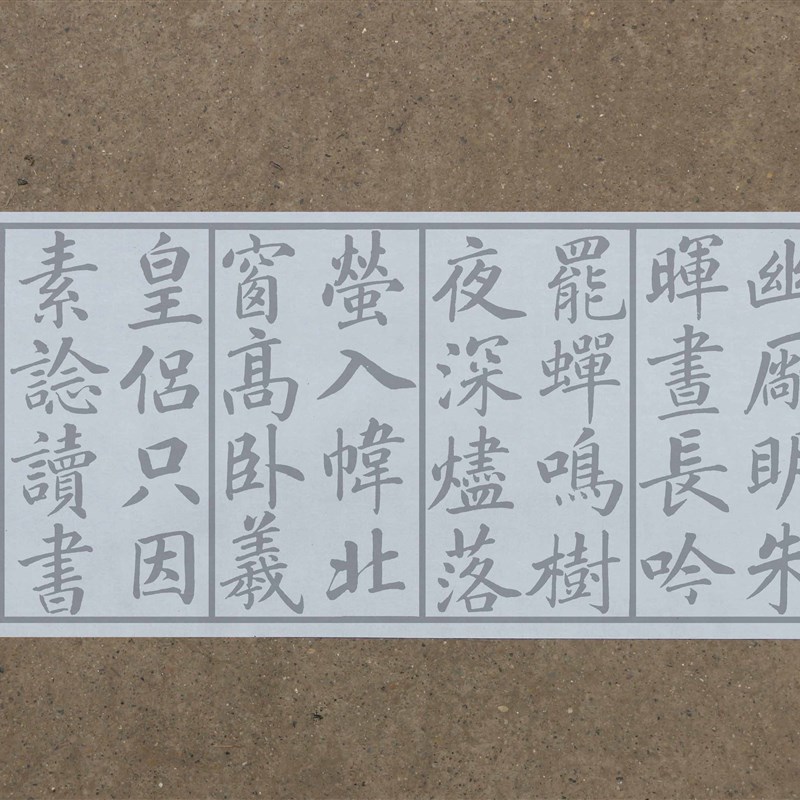 幽厰明朱
暉晝長吟
罷蟬鳴樹
夜深燼落
螢入幃北
窗髙卧羲
皇侶只因
素諗讀書